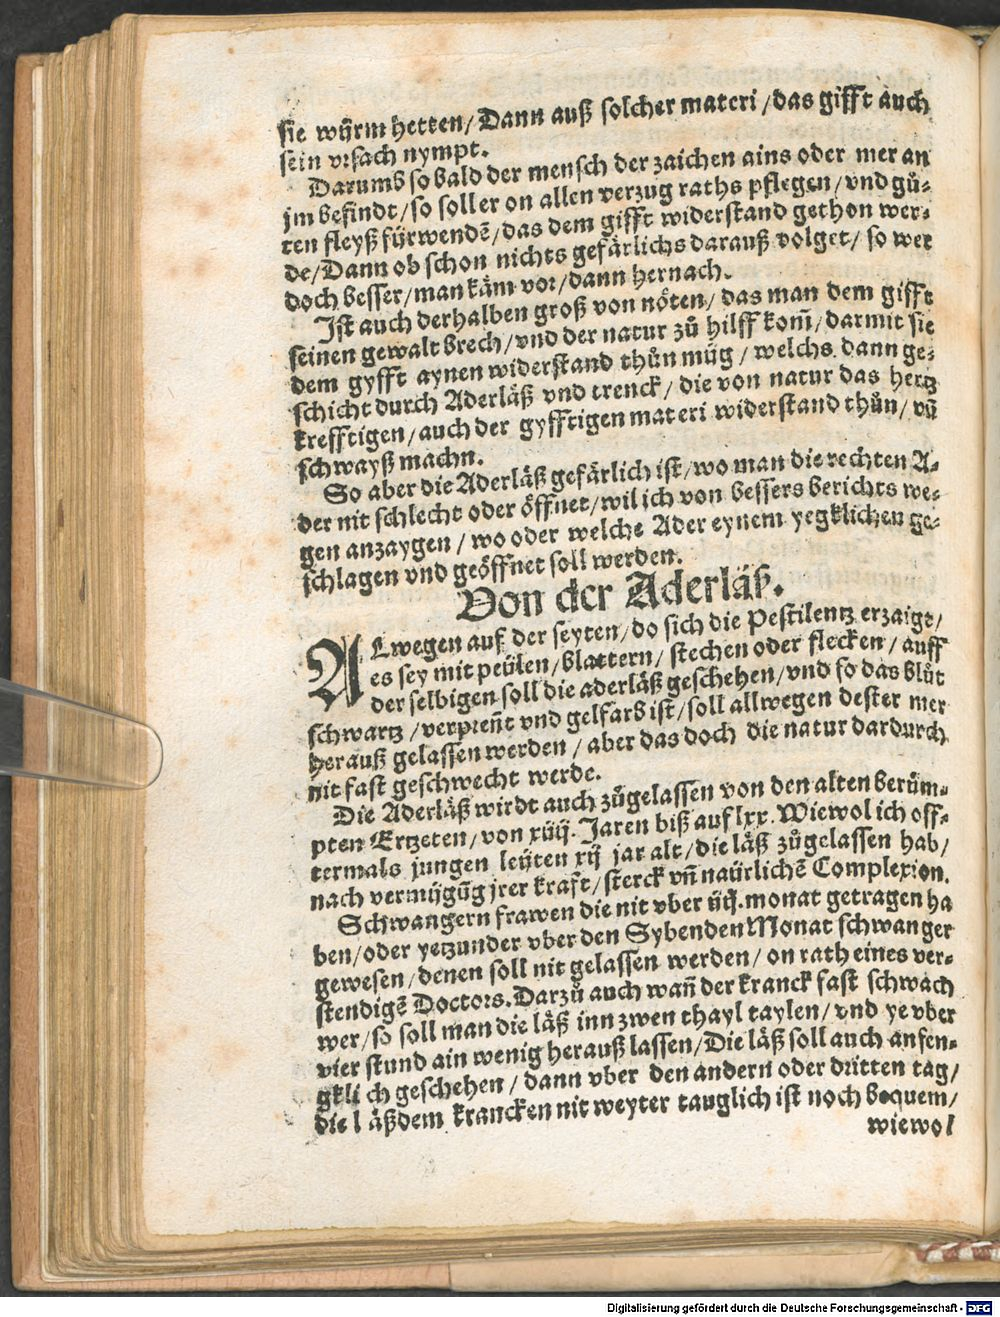 sie würm hetten/ Dann auß solcher materi/das gifft auch
sein vrsach nympt.
Darumb so bald der mensch der zaichen ains oder mer an
jm befindt/so soll er on allen verzug raths pflegen/vnd gů-
ten fleyß fürwendē/das dem gifft widerstand gethon wer-
de/Dann ob schon nichts gefärlichs darauß volget/ so wer
doch besser/man käm vor/dann hernach.
Ist auch derhalben groß von nöten/ das man dem gifft
seinen gewalt brech/vnd der natur zů hilff kom̄/darmit sie
dem gyfft aynen widerstand thůn müg/ welchs dann ge-
schicht durch Aderläß vnd trenck/die von natur das hertz
krefftigen/auch der gyfftigen materi widerstand thůn/ vñ
schwayß machn.
So aber die Aderläß gefärlich ist/wo man die rechten A-
der nit schlecht oder öffnet/wil ich von bessers berichts we-
gen anzaygen/wo oder welche Ader eynem yegklichen ge-
schlagen vnd geöffnet soll werden.
Von der Aderläß.
ALwegen auf der seyten/do sich die Pestilentz erzaigt/
es sey mit peülen/blattern/ stechen oder flecken/ auff
der selbigen soll die aderläß geschehen/vnd so das blůt
schwartz/verpreñt vnd gelfarb ist/soll allwegen dester mer
herauß gelassen werden/ aber das doch die natur dardurch
nit fast geschwecht werde.
Die Aderläß wirdt auch zůgelassen von den alten berüm-
pten Ertzeten/von xiiij. Jaren biß auf lxx. Wiewol ich off-
termals jungen leüten xij jar alt/die läß zůgelassen hab/
nach vermügūg jrer kraft/sterck vñ naürlichē Complexion.
Schwangern frawen die nit vber iiij. monat getragen ha
ben/oder yetzunder vber den Sybenden Monat schwanger
gewesen/denen soll nit gelassen werden/ on rath eines ver-
stendigē Doctors. Darzů auch wañ der kranck fast schwach
wer/so soll man die läß inn zwen thayl taylen/ vnd ye vber
vier stund ain wenig herauß lassen/Die läß soll auch anfen-
gkli ch geschehen/dann vber den andern oder dritten tag/
die l äßdem krancken nit weyter tauglich ist noch bequem/
wiewol
Digitalisierung gefördert durch die Deutsche Forschungsgemeinschaft - DFG